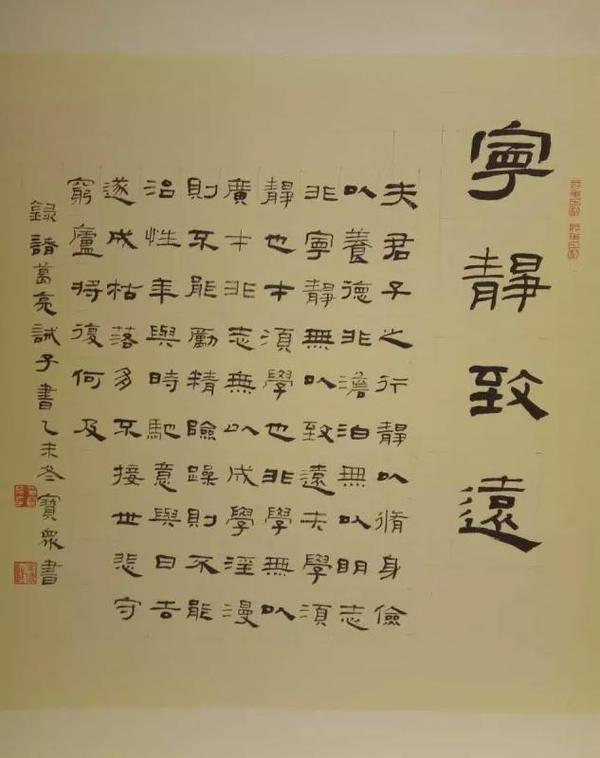 寧靜致遠
夫君子之行靜以脩身儉
以養德非澹泊無以明志
非寧靜無以致遠夫學須
靜也才須學也非學無以
廣才非志無以成學淫漫
則不能勵精險躁則不能
治性年與時馳意與日去
遂成枯落多不接世悲守
窮廬將復何及
錄諸葛亮誡子書乙未冬寶眾書